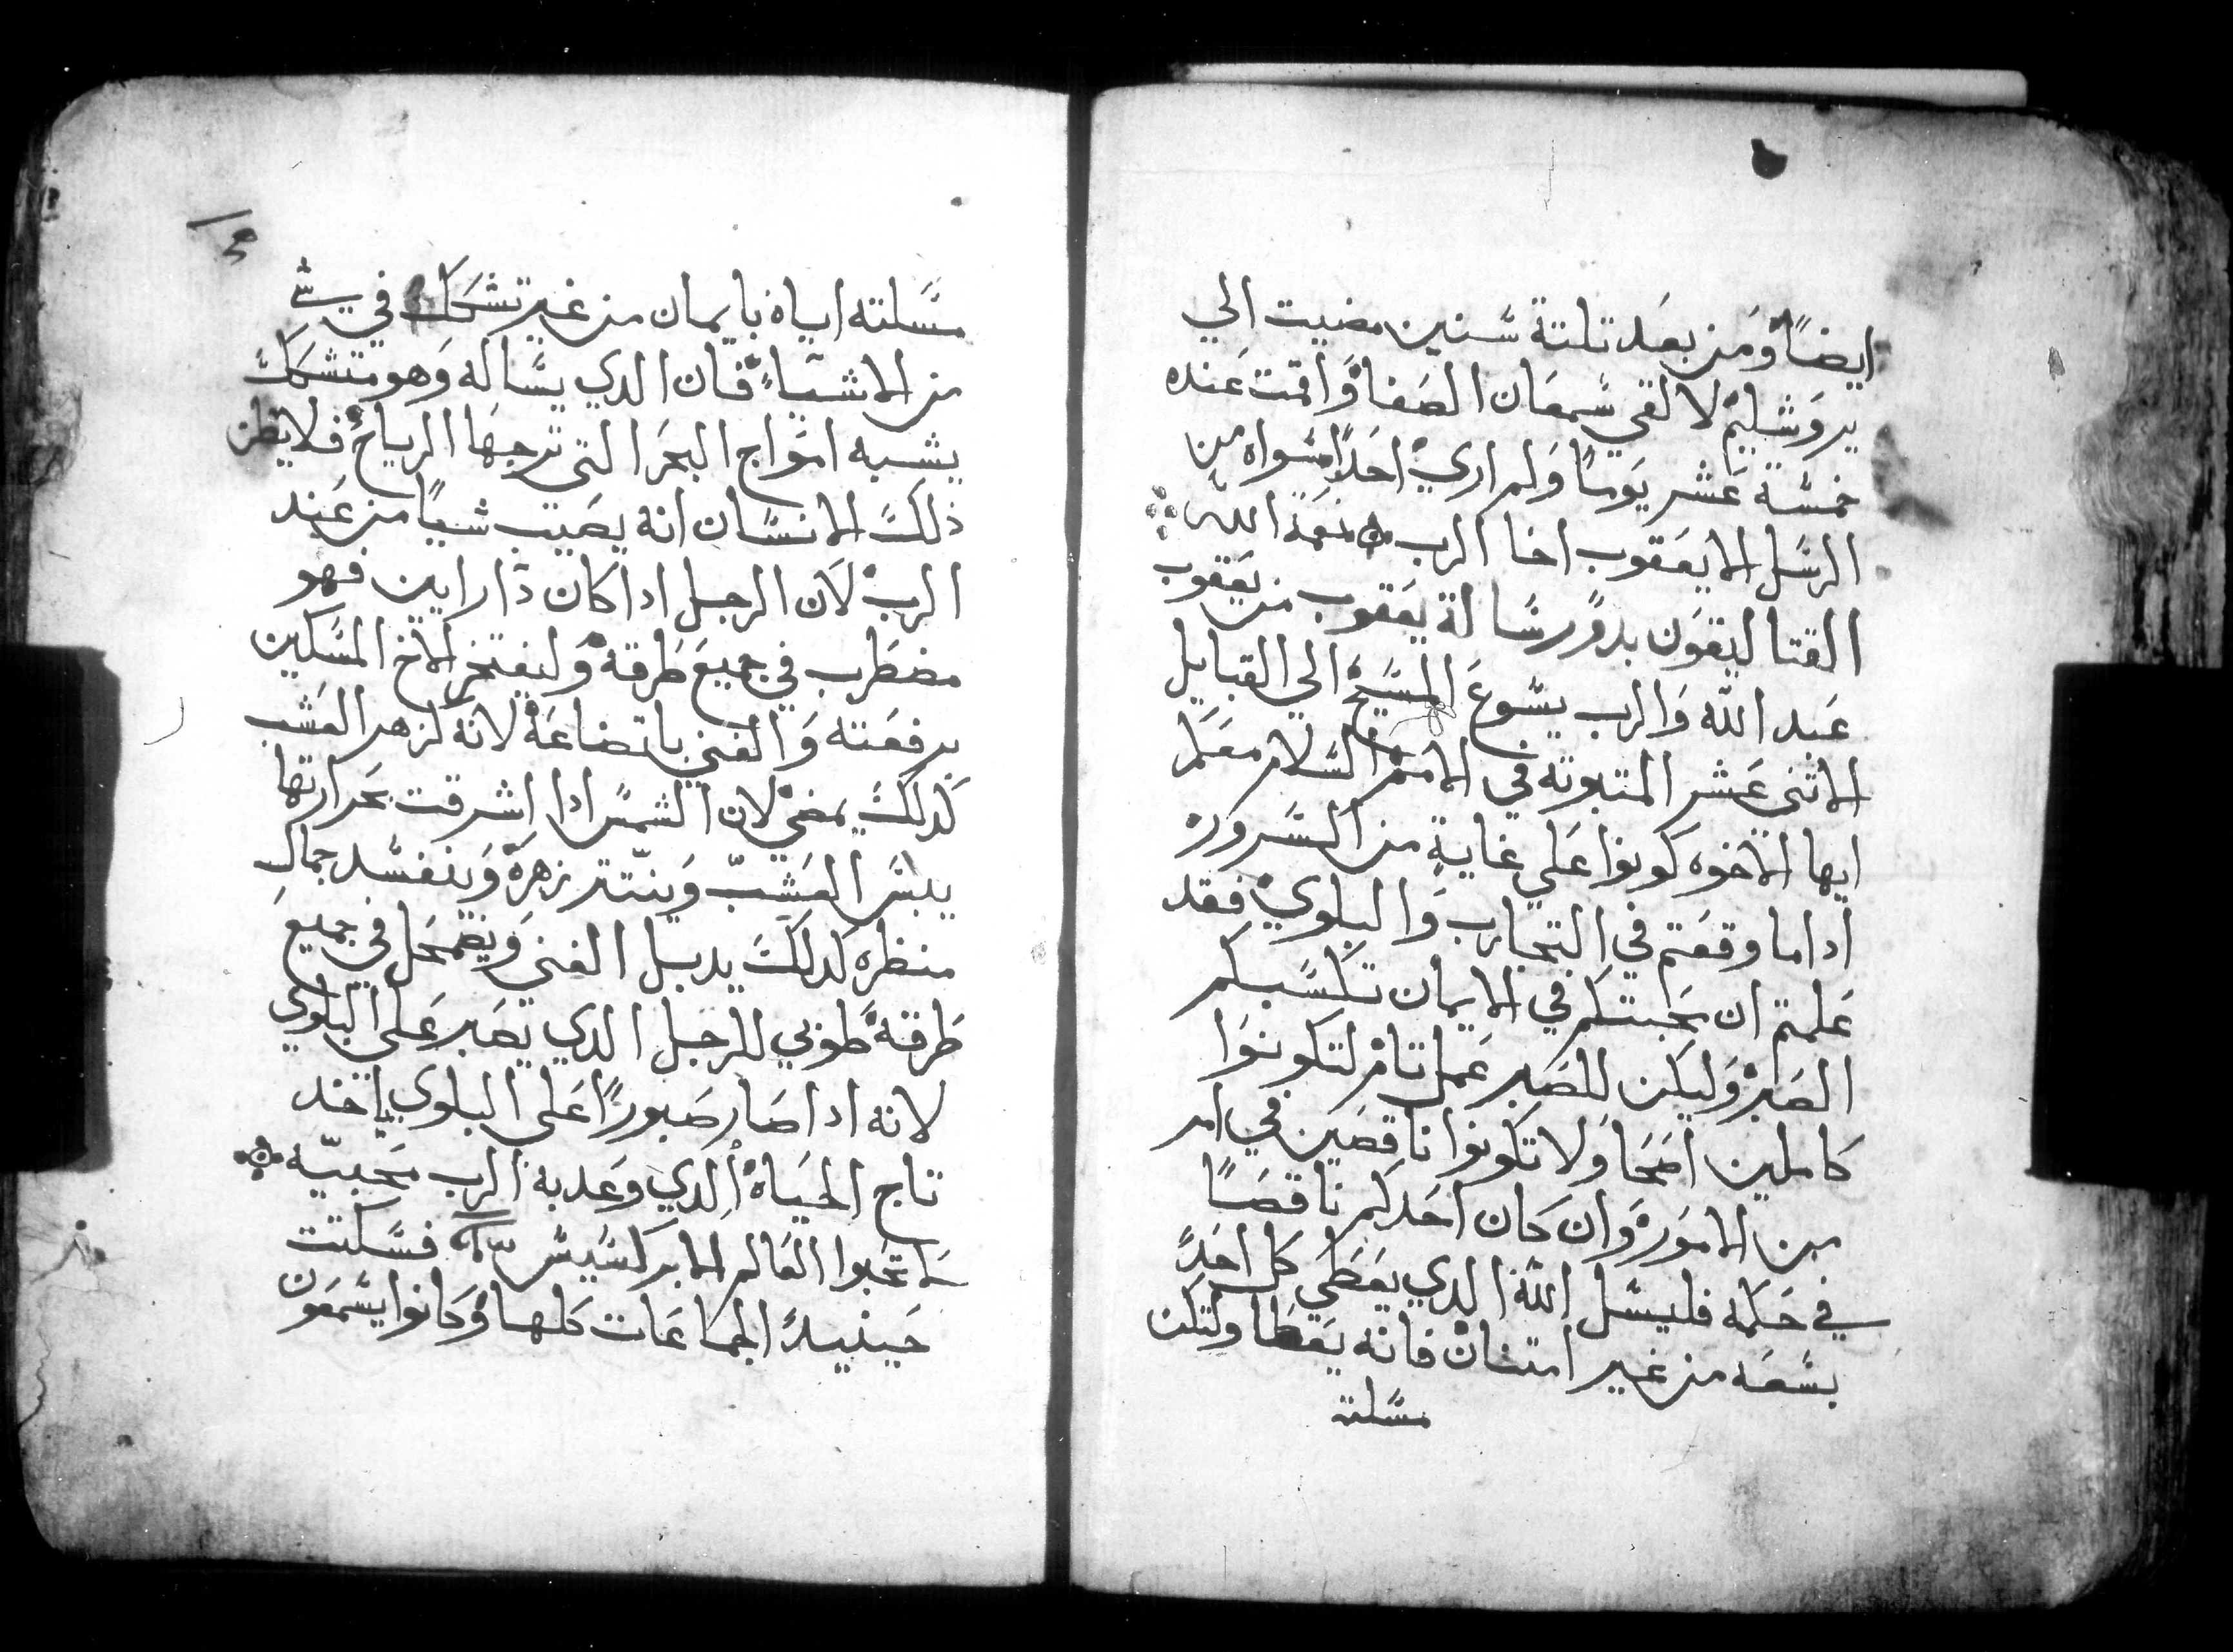 ايضاً وَمن بعَد تلتة سَنين مضيت الي
يروَشليم لالقي سَمعَان الصَفا وَاقمت عَنده
خمسَة عَشر يَوماً وَلم اري احَداً سَواه من
الرسَل الا يعَقوب اخا الرب نعمة الله
القتاليقَون بدوً رسَالة يعَقوب من يعَقوب
عَبد الله وَالرب يسَوع المسَيح الي القبايل
الاثني عَشر المتبوته في الامم السَلام معَكم
ايها الاخوه كونوا عَلي غاية من السَرور
اداما وقعَتم في التجارب وَالبلوي فقد
عَلمتم ان محَبتكم في الايمان تكسَبكم
الصَبر وَليكن للصَبر عَمل تام لتكونوَا
كاملين اصَحَا وَلا تكونوا ناقصَين في امر
من الامَور وَان كان احَدكم ناقصَاً
في حَكمه فليسَل الله الدي يعَطي كل احَدً
بسَعَه من غير امتنان فانه يعَطا ولتكن
مسَلته
مسَلته اياه بايمان من غير تشكك في شي
من الاشياء فان الدي يسَاله وَهو متشكك
يشبه امَواج البحَر التي ترجهَا الرياح فلا يظن
ذلك الانسَان انه يصَيب شياً من عَند
الرب لان الرجل ادا كان دا رايين فهو
مضطَرب في جميعَ طَرقه وَليفتخر الاخ المسَكين
برفعَته وَالغني باتضاعَه لانه كزهر العَشب
كدلك يمضي لان الشمسَ ادا اشرقت بحَرارتها
يبسَ العَشب وَينتتر زهره وَينفسَد جمال
منظره كدلك يدبل الغني وَيضمحَل في جميعَ
طَرقه طوبي للرجل الدي يصَبر عَلي البلوي
لانه ادا صَار صَبوراً عَلي البلوي ياخد
تاج الحيَاه الدي وَعَد به الرب محَبيه
لا تحَبوا العَالم الابركسَيسَ فسَكتت
حَينيدً الجماعَات كلها وَكانوا يسَمعَون